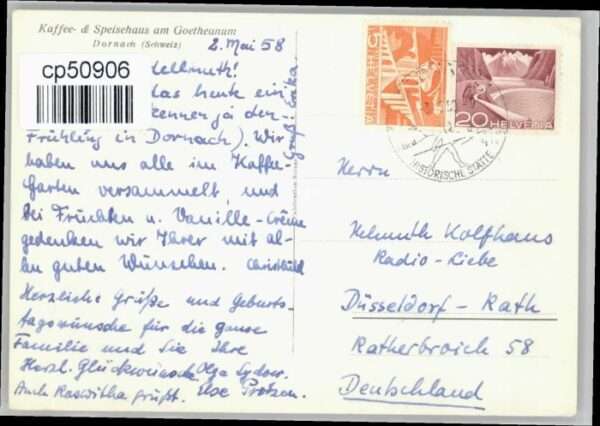 Kaffee- & Speisehaus am Goetheanum
Dornach (Schweiz)
2. Mai 58
cp50906
Hellmuth!
das heute ein
kennen ja den
Frühling in Dornach). Wir
haben uns alle im Kaffee-
Garten versammelt und
bei Früchten u. Vanille-Crème
gedenken wir Ihrer mit al-
len guten Wünschen. Christhild
Gruß Erika
Herzliche Grüße und Geburts-
tagswünsche für die ganze
Familie und Sie Ihre
Herzl. Glückwünsche Olga Sydow.
Auch Roswitha grüßt. Else
5
HELVETIA
20 HELVETIA
HISTORISCHE STÄTTE
Herrn
Helmuth Kolfhaus
Radio-Liebe
Düsseldorf-Rath
Ratherbroich 58
Deutschland